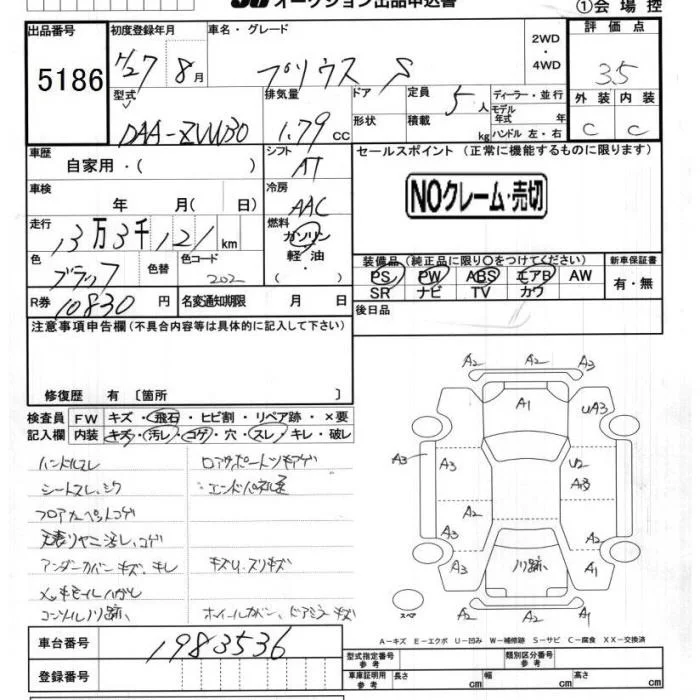 オークション出品申込書
①会場控
出品番号
5186
初度登録年月
H27 8月
車名・グレード
プリウス S
2WD
・
4WD
評価点
3.5
型式
DAA-ZVW30
排気量
1.79 CC
ドア
形状
定員
5人
積載
kg
ディーラー・並行
モデル
年式 年
ハンドル 左・右
外装
C
内装
C
車歴
自家用・( )
シフト
AT
セールスポイント (正常に機能するものに限ります)
NOクレーム・売切
車検
年 月( 日)
冷房
AAC
走行
13万3千121km
燃料
ガソリン
軽油・
( )
色
ブラック
色替
色コード
202
装備品 (純正品に限り○をつけてください)
PS PW ABS エアB AW
SR ナビ TV カワ
新車保証書
有・無
R券
10830円
名変通知期限 月 日
後日品
注意事項申告欄(不具合内容等は具体的に記入して下さい)
修復歴 有 〔箇所 〕
検査員
記入欄
FW キズ・飛石・ヒビ割・リペア跡・×要
内装 キズ・汚レ・コゲ・穴・スレ・キレ・破レ
ハンドルスレ
シートスレ、シワ
フロアカーペットコゲ
天張りヤニ汚レ、コゲ
アンダーカバーキズ、キレ
メッキモールハガレ
コンソールノリ跡
ロアサポートキズコゲ
エンドパネル歪
キズリ、スリキズ
ホイールカバー、ドアミラーキズ
A2 A2 A3
A1
UA3
A3 A3
U2
A3
A2 A2
A3 ノリ跡 A1
A2 A2 A1
スペア
A-キズ E-エクボ U-凹み W-補修跡 S-サビ C-腐食 XX-交換済
車台番号
1983536
登録番号
型式指定番号
参考
類別区分番号
参考
車庫証明用
参考
長さ cm 幅 cm 高さ cm